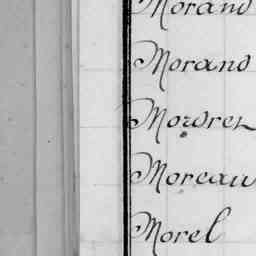 Morand
Morand
Mordret
Moreau
Morel